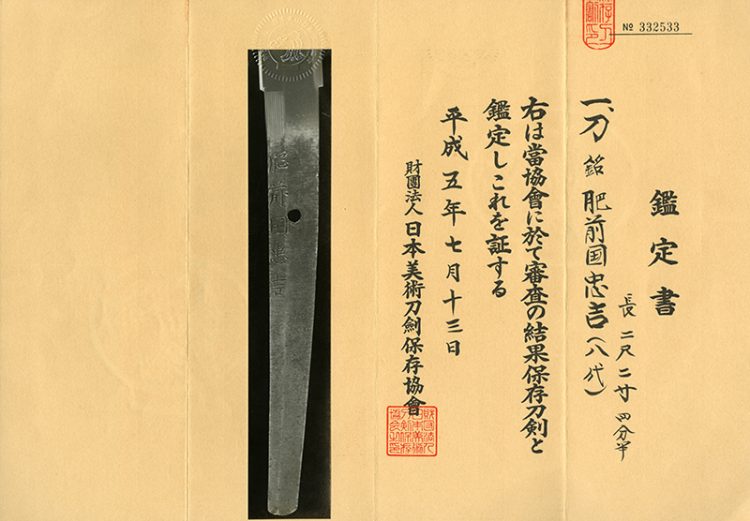 № 332533
鑑定書
一、刀 銘 肥前国忠吉(八代)
長 二尺二寸四分半
右は當協會に於て審査の結果保存刀剣と
鑑定しこれを証する
平成五年七月十三日
財團法人日本美術刀劍保存協會
肥前国忠吉